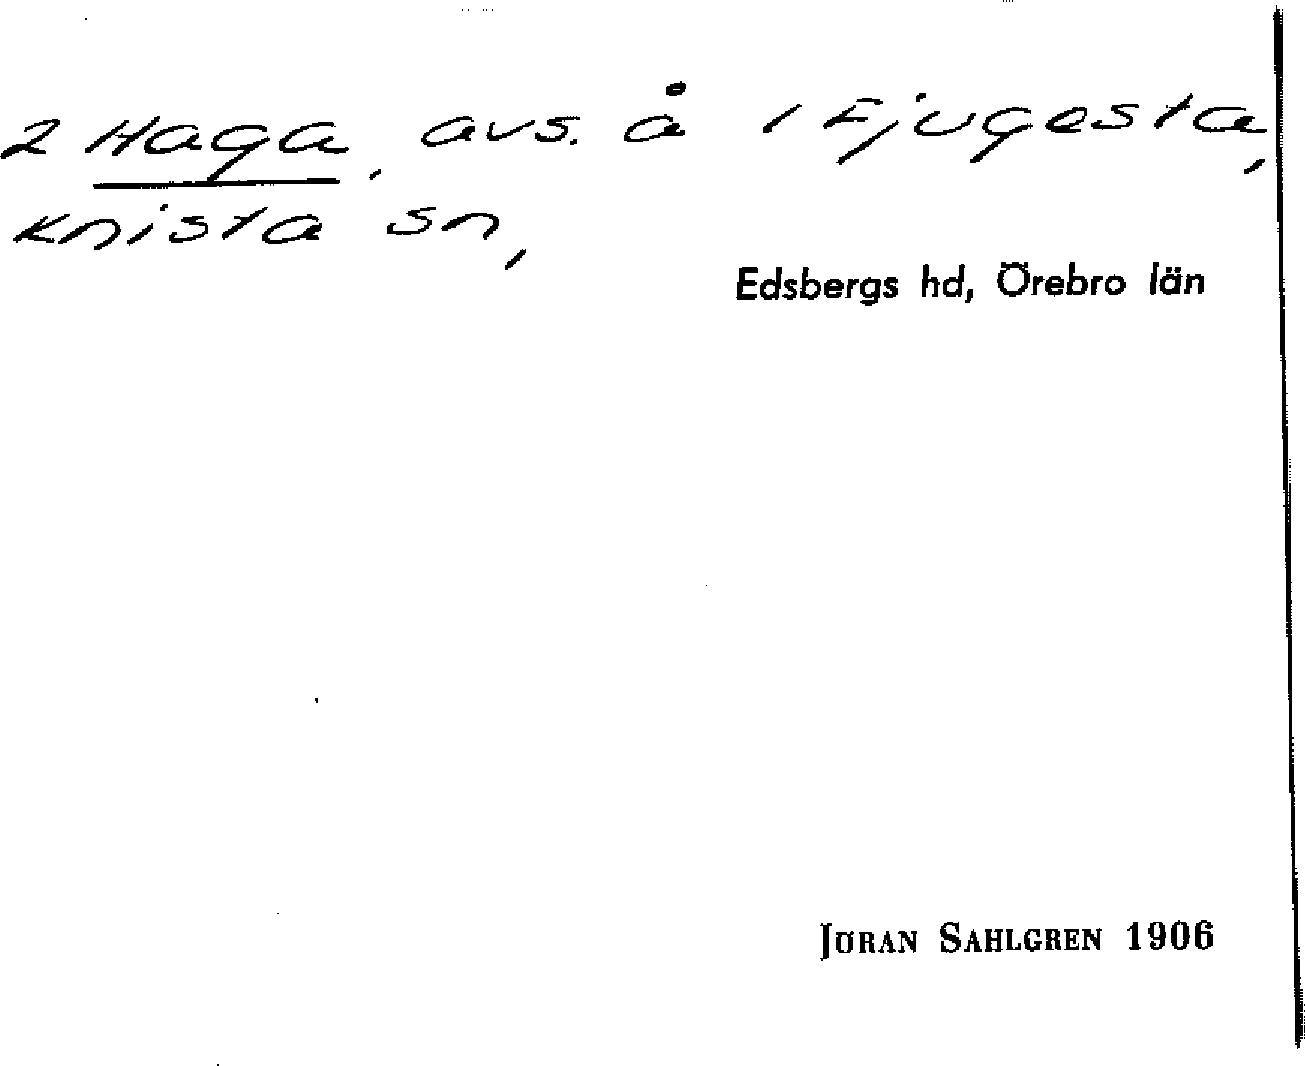 2 Haga, avs. å 1 Fjugesta,
Knista sn,
Edsbergs hd, Örebro län
JÖRAN SAHLGREN 1906